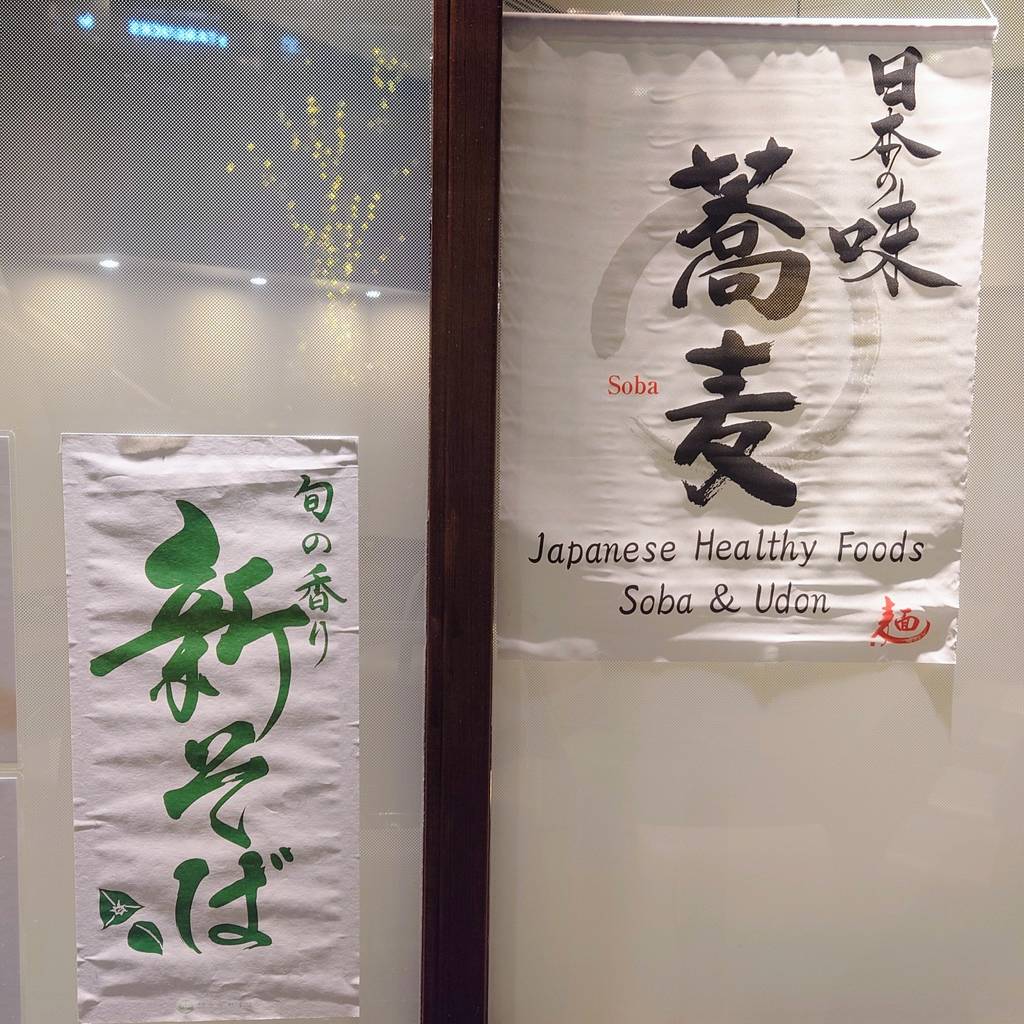 日本の味
蕎麦
Soba
Japanese Healthy Foods
Soba & Udon
麺
旬の香り
新そば